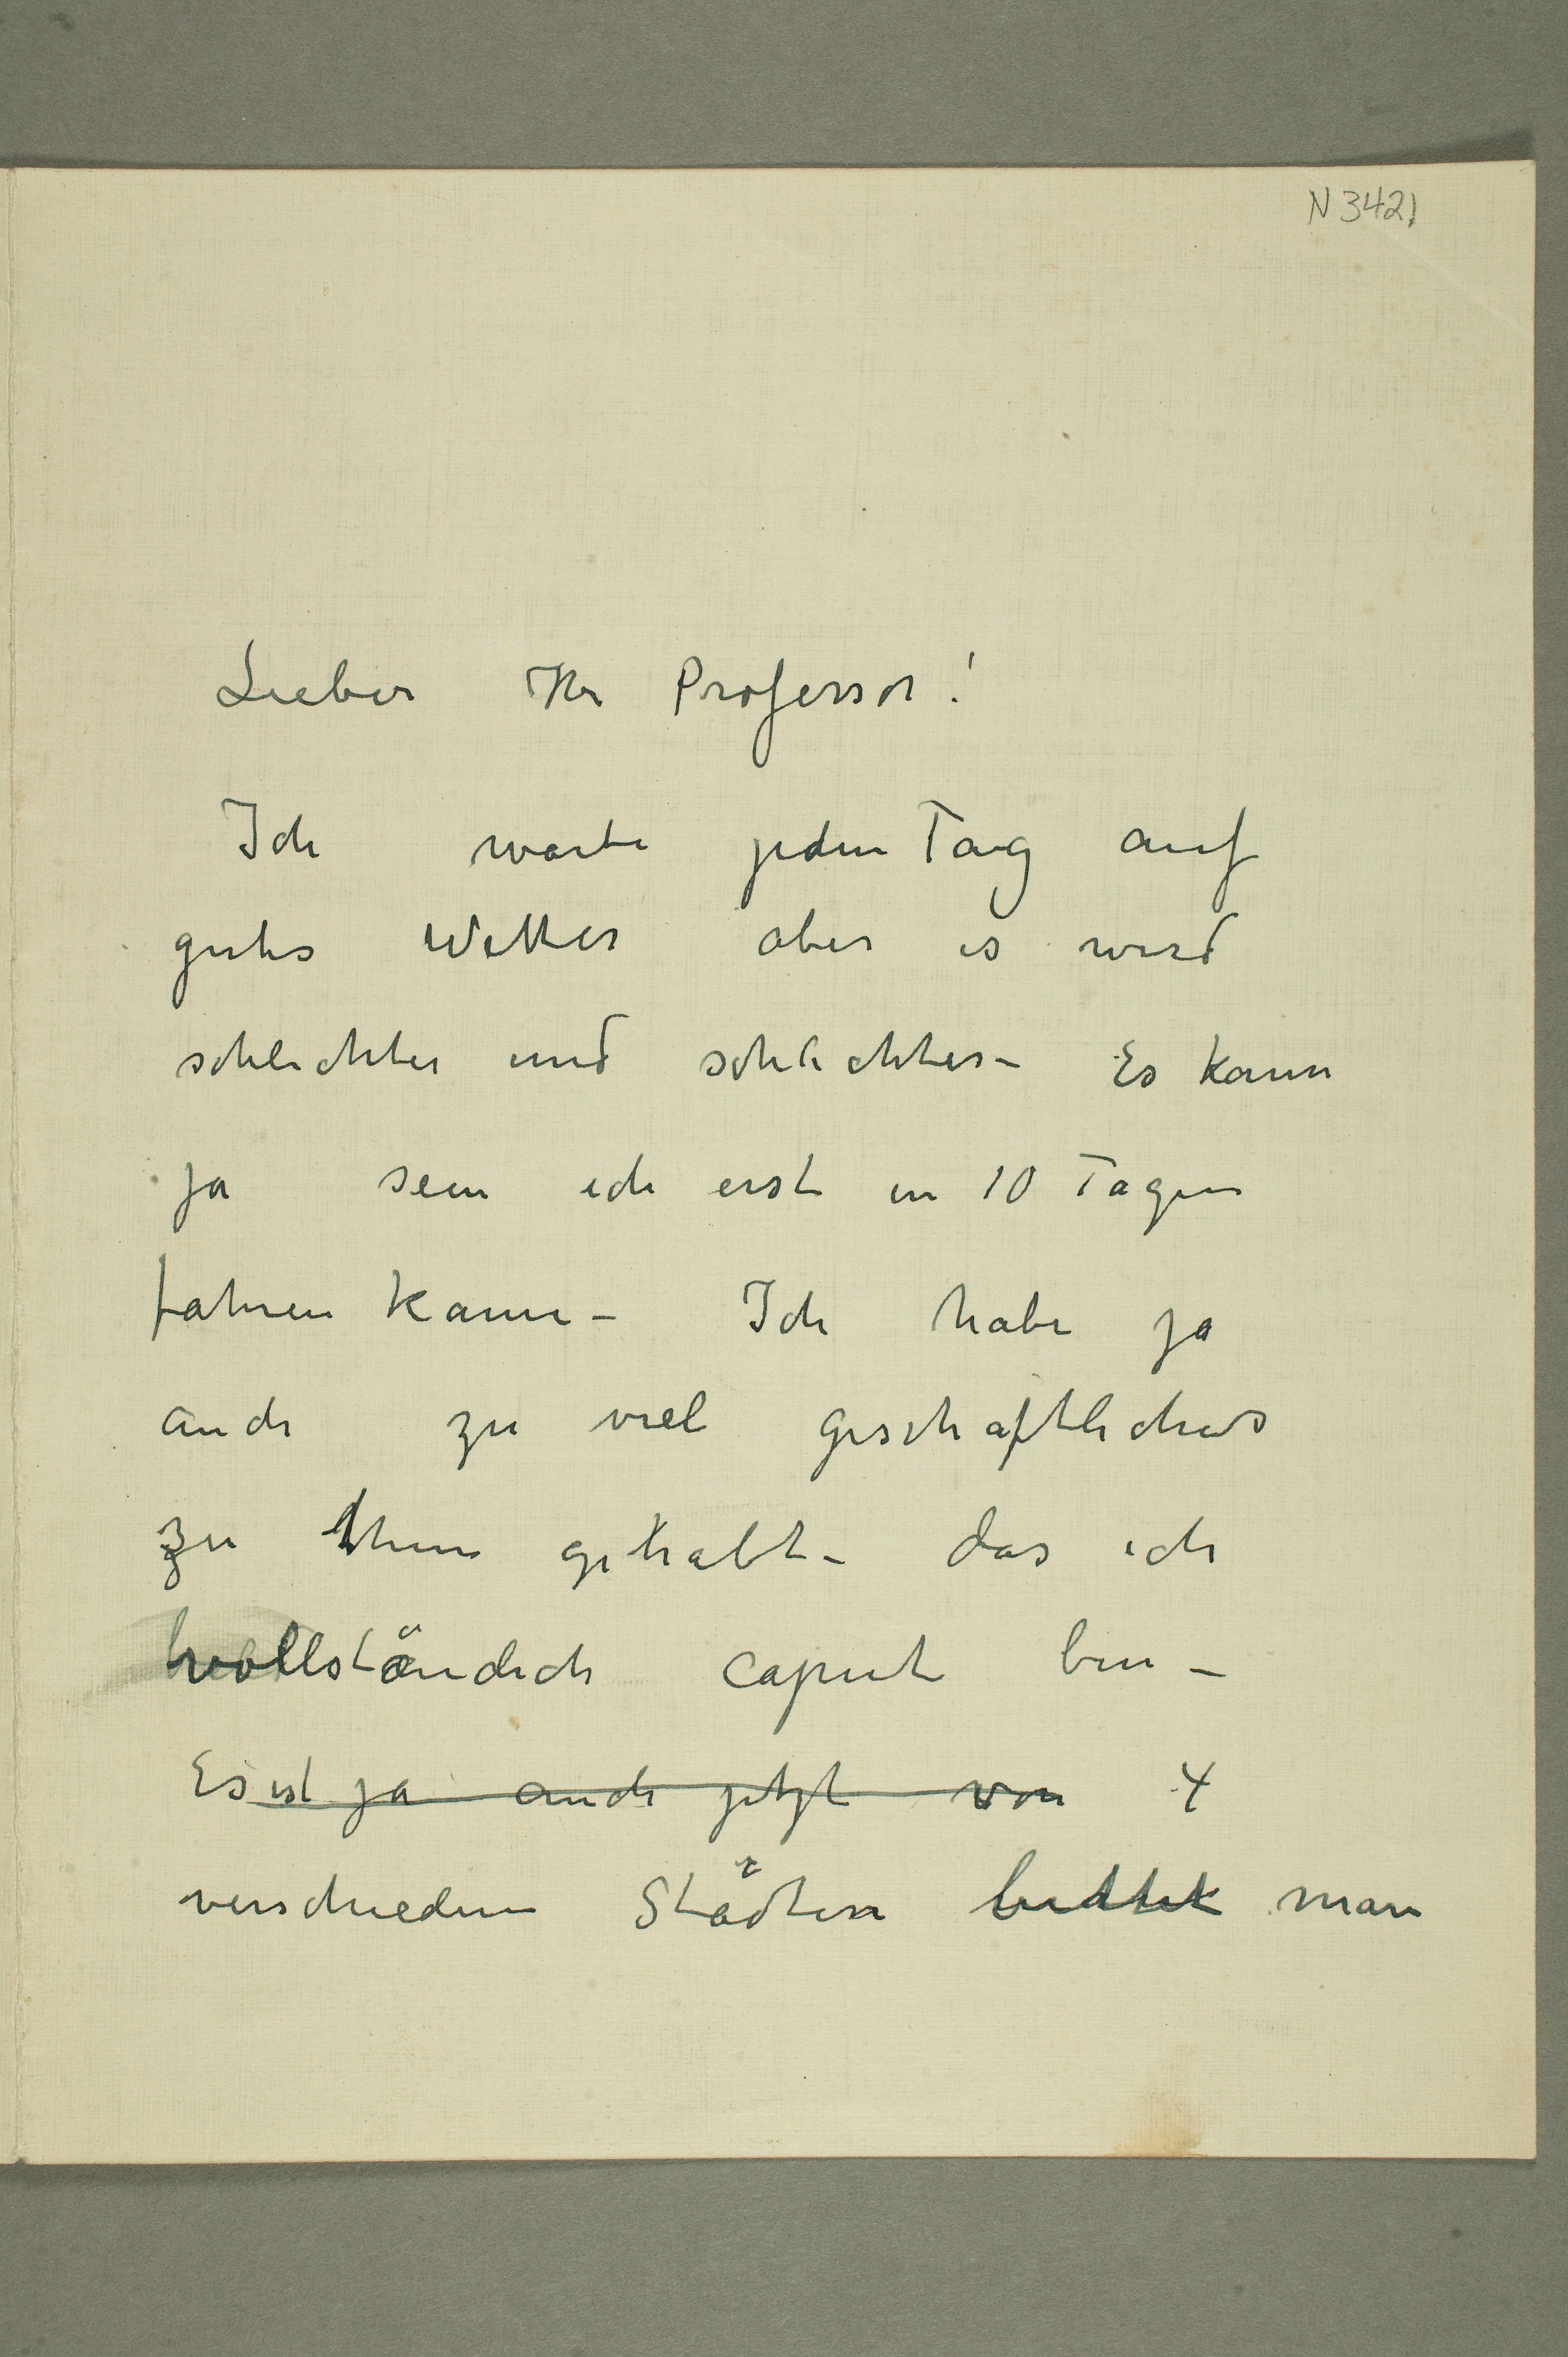 N 3421
Lieber Hr Professor!
Ich warte jeden Tag auf
gutes Wetter aber es wird
schlechter und schlechter – Es kann
ja sein ich erst in 10 Tagen
fahren kann – Ich habe ja
auch zu viel geschäftliches
zu thun gehabt – das ich
vollständich caput bin –
Es ist ja auch jetzt von 4
verschiedene Städten man